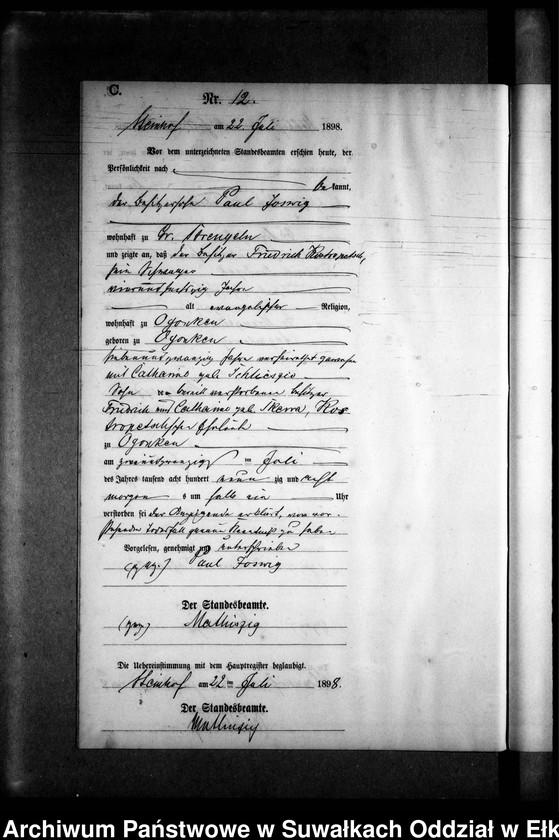 C.
Nr. 12.
Steinhof am 22. Juli 1898.
Vor dem unterzeichneten Standesbeamten erschien heute, der
Persönlichkeit nach
bekannt,
der Besitzersohn Paul Joswig
wohnhaft zu Gr. Strengeln
und zeigte an, daß der Besitzer Friedrich
sein Schwager
vierundfünfzig Jahre
alt evangelischer Religion,
wohnhaft zu Ogonken
geboren zu Ogonken
siebenundzwanzig Jahre verheirathet gewesen
mit Catharine geb.
Sohn der bereits verstorbenen Besitzer
Friedrich und Catharine geb. Skerra,
Eheleute
zu Ogonken
am zweiundzwanzigsten Juli
des Jahres tausend acht hundert neunzig und acht
morgens um halb ein Uhr
verstorben sei der Anzeigende erklärt, von vor-
stehendem Todesfall genaue Kenntniß zu haben
Vorgelesen, genehmigt und unterschrieben
(gez.) Paul Joswig
Der Standesbeamte.
(gez.) Mathiszig
Die Uebereinstimmung mit dem Hauptregister beglaubigt.
Steinhof am 22ten Juli 1898.
Der Standesbeamte.
Mathiszig
Archiwum Państwowe w Suwałkach Oddział w Ełk